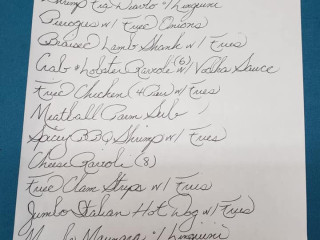 Shrimp Fra Diavlo w/ Linguini
Pierogies w/ Fried Onions
Braised Lamb Shank w/ Fries
Crab & Lobster Ravioli (6) w/ Vodka Sauce
Fried Chicken (4 Pcs) w/ Fries
Meatball Parm Sub
Spicy BBQ Shrimp w/ Fries
Cheese Ravioli (8)
Fried Clam Strips w/ Fries
Jumbo Italian Hot Dog w/ Fries
w/ Linguini